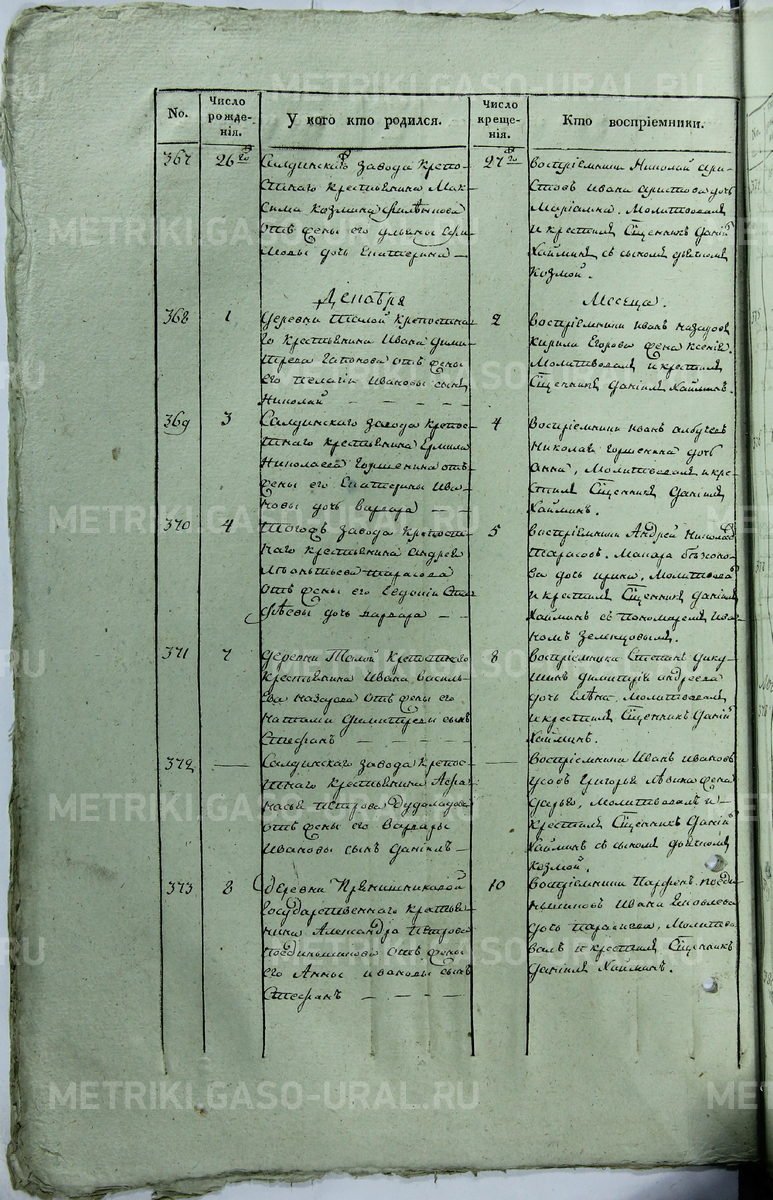 No.
Число рожде-нія.
У кого кто родился.
Число креще-нія.
Кто воспріемники.
367
26го
Салдинскаго завода крепо-
стнаго крестьянина Мак-
сима Козмина
отъ жены его Ульяны Ефи-
мовы дочь Екатерина —
27го
Воспріемники Николай Ари-
стовъ Ивана Аристова дочь
Маріамна. Молитвовалъ
и крестилъ Священникъ Даніил
Хайминъ съ сыномъ дьячкомъ
Козмой.
Декабря
Месеца.
368
1
Деревни Таплой крепостна-
го крестьянина Ивана Дими-
тріева Гапонова отъ жены
его Пелагіи Ивановы сынъ
Николай — — — — —
2
Воспріемники Иванъ Назаровъ
Кирила Егорова жена Ксенія.
Молитвовалъ и крестилъ
Священникъ Даніилъ Хайминъ.
369
3
Салдинскаго завода крепос-
тнаго крестьянина Ермила
Николаева Горшенина отъ
жены его Екатерины Ива-
новы дочь Варвара — —
4
Воспріемники Иванъ
Николая Горшенина дочь
Анна, Молитвовалъ и кре-
стилъ Священникъ Даніилъ
Хайминъ.
370
4
Тогожъ завода крепост-
наго крестьянина Андрея
Тарасова
отъ жены его Евдокіи
дочь Варвара — —
5
Воспріемники Андрей Николаев
Тарасовъ. Макара
ва дочь Ирина, Молитвовал
и крестилъ Священникъ Даніилъ
Хайминъ съ пономаремъ Ива-
номъ Земляцовымъ.
371
7
Деревни Таплой Крепостнаго
Крестьянина Ивана Василь-
ева Назарова отъ жены его
Наталіи Димитріевы сынъ
Стефанъ — — — — —
8
Воспріемники Степанъ Цику-
шинъ Димитрія Андреева
дочь Елена, Молитвовалъ
и крестилъ Священникъ Даніил
Хайминъ.
372
—
Салдинскаго завода Крепос-
тнаго Крестьянина Афа-
насья Петрова Дудоладова
отъ жены его Варвары
Ивановы сынъ Даніилъ —
—
Воспріемники Иванъ Ивановъ
Усовъ Григорья жена
Дарья, Молитвовалъ и
Крестилъ Священникъ Даніил
Хайминъ съ сыномъ дьячкомъ
Козмой.
373
8
Деревни Прянишниковой
Государственнаго Крестья-
нина Александра Петрова
отъ жены
его Анны Ивановы сынъ
Стефанъ — — — —
10
Воспріемники Парфенъ
Ивана Яковлева
дочь Параскева, Молитво-
валъ и крестилъ Священникъ
Даніилъ Хайминъ.
METRIKI.GASO-URAL.RU